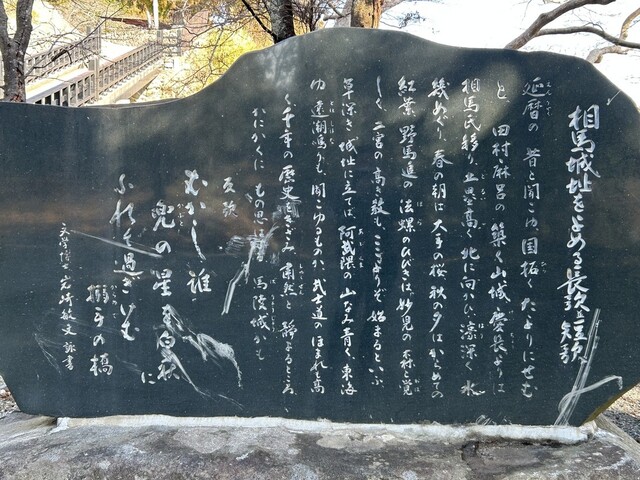 相馬城址をよめる長歌並短歌
延暦の 昔と聞こゆ 国拓く たよりにせむ
と 田村麻呂の 築く山城 慶長の頃は
相馬氏移り 塁高く 北に向かひ 濠深く 水
幾めぐり 春の朝は 大手の桜 秋の夕は からめての
紅葉 野馬追の 法螺のひびきは 妙見の 森に覚
しく 二宮の 高き教も ここよりぞ 始まるといふ
草深き 城址に立てば 阿武隈の 山なみ青く 東海
ゆ 遠潮鳴りも 聞こゆるものか 武士道の ほまれも高
く 千年の 歴史をきざみ 粛然と 静まるところ
かにかくに もの思はする 馬陵城かも
反歌
むかし誰
兜の星を 白萩に
ふれて過ぎけむ
搦手の橋
文学博士 岩崎敏夫 詠書